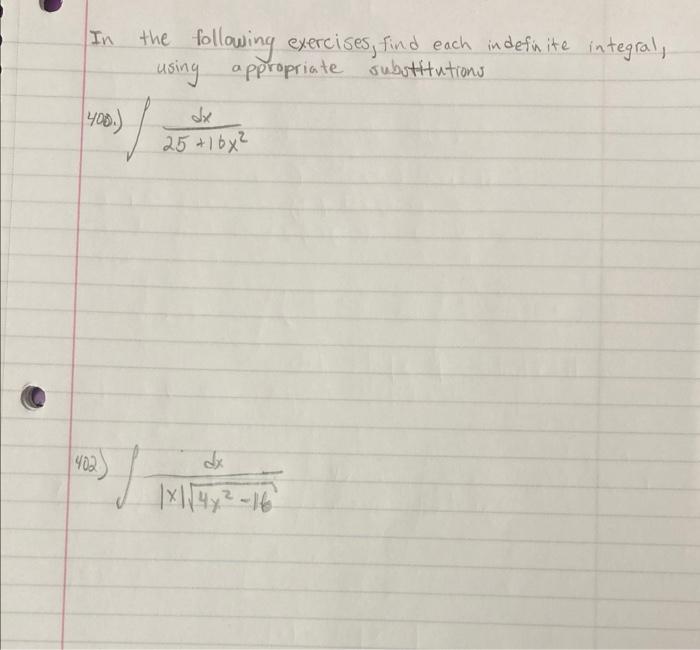 In the following exercises, find each indefinite integral,
using appropriate substitutions
400.) ∫ dx / (25 + 16x²)
402) ∫ dx / (|x|√(4x² - 16))